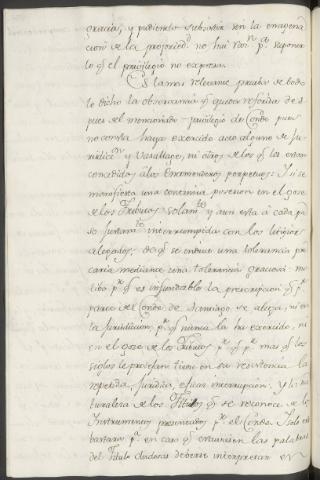 gracia, y pudiendo subsistir sin la enagena
cion de la propried.d no hai razon p.a suponer
lo q.e el privilegio no expresa.
Es la mas relevante prueba de todo
lo dicho la observancia q.e queda referida des
pues del mencionado privilegio de Conde pues
no consta haya exercido acto alguno de Ju
risdicc.on y Vasallage, ni otros de los q.e les estan
concedidos á los Encomenderos perpetuos: Y si se
manifiesta una continua posesion en el goze
de los Tributos solam.te y aun esta á cada pa
so justam.te interrumpida con los litigios
alegados, de q.e se induce una tolerancia pre
caria mediante una tolerancia graciosa: mo
tibo p.r q.e es infundable la prescripcion q.e p.r
parte del Conde de Santiago se alega, ni en
la Jurisdiccion p.r q.e nunca la ha exercido, ni
en el goze de los Tributos p.r q.e p.r mas q.e los
siglos le protejan tiene en su resistencia la
repetida, juridica, eficaz interrupcion. Y la na
turaleza de los Titulos q.e se reconoce de los
Instrumentos presentados p.r el Conde. Y solo esto
bastara p.a en caso q.e tuviesen las palabras
del Titulo dudosas deberse interpretar en